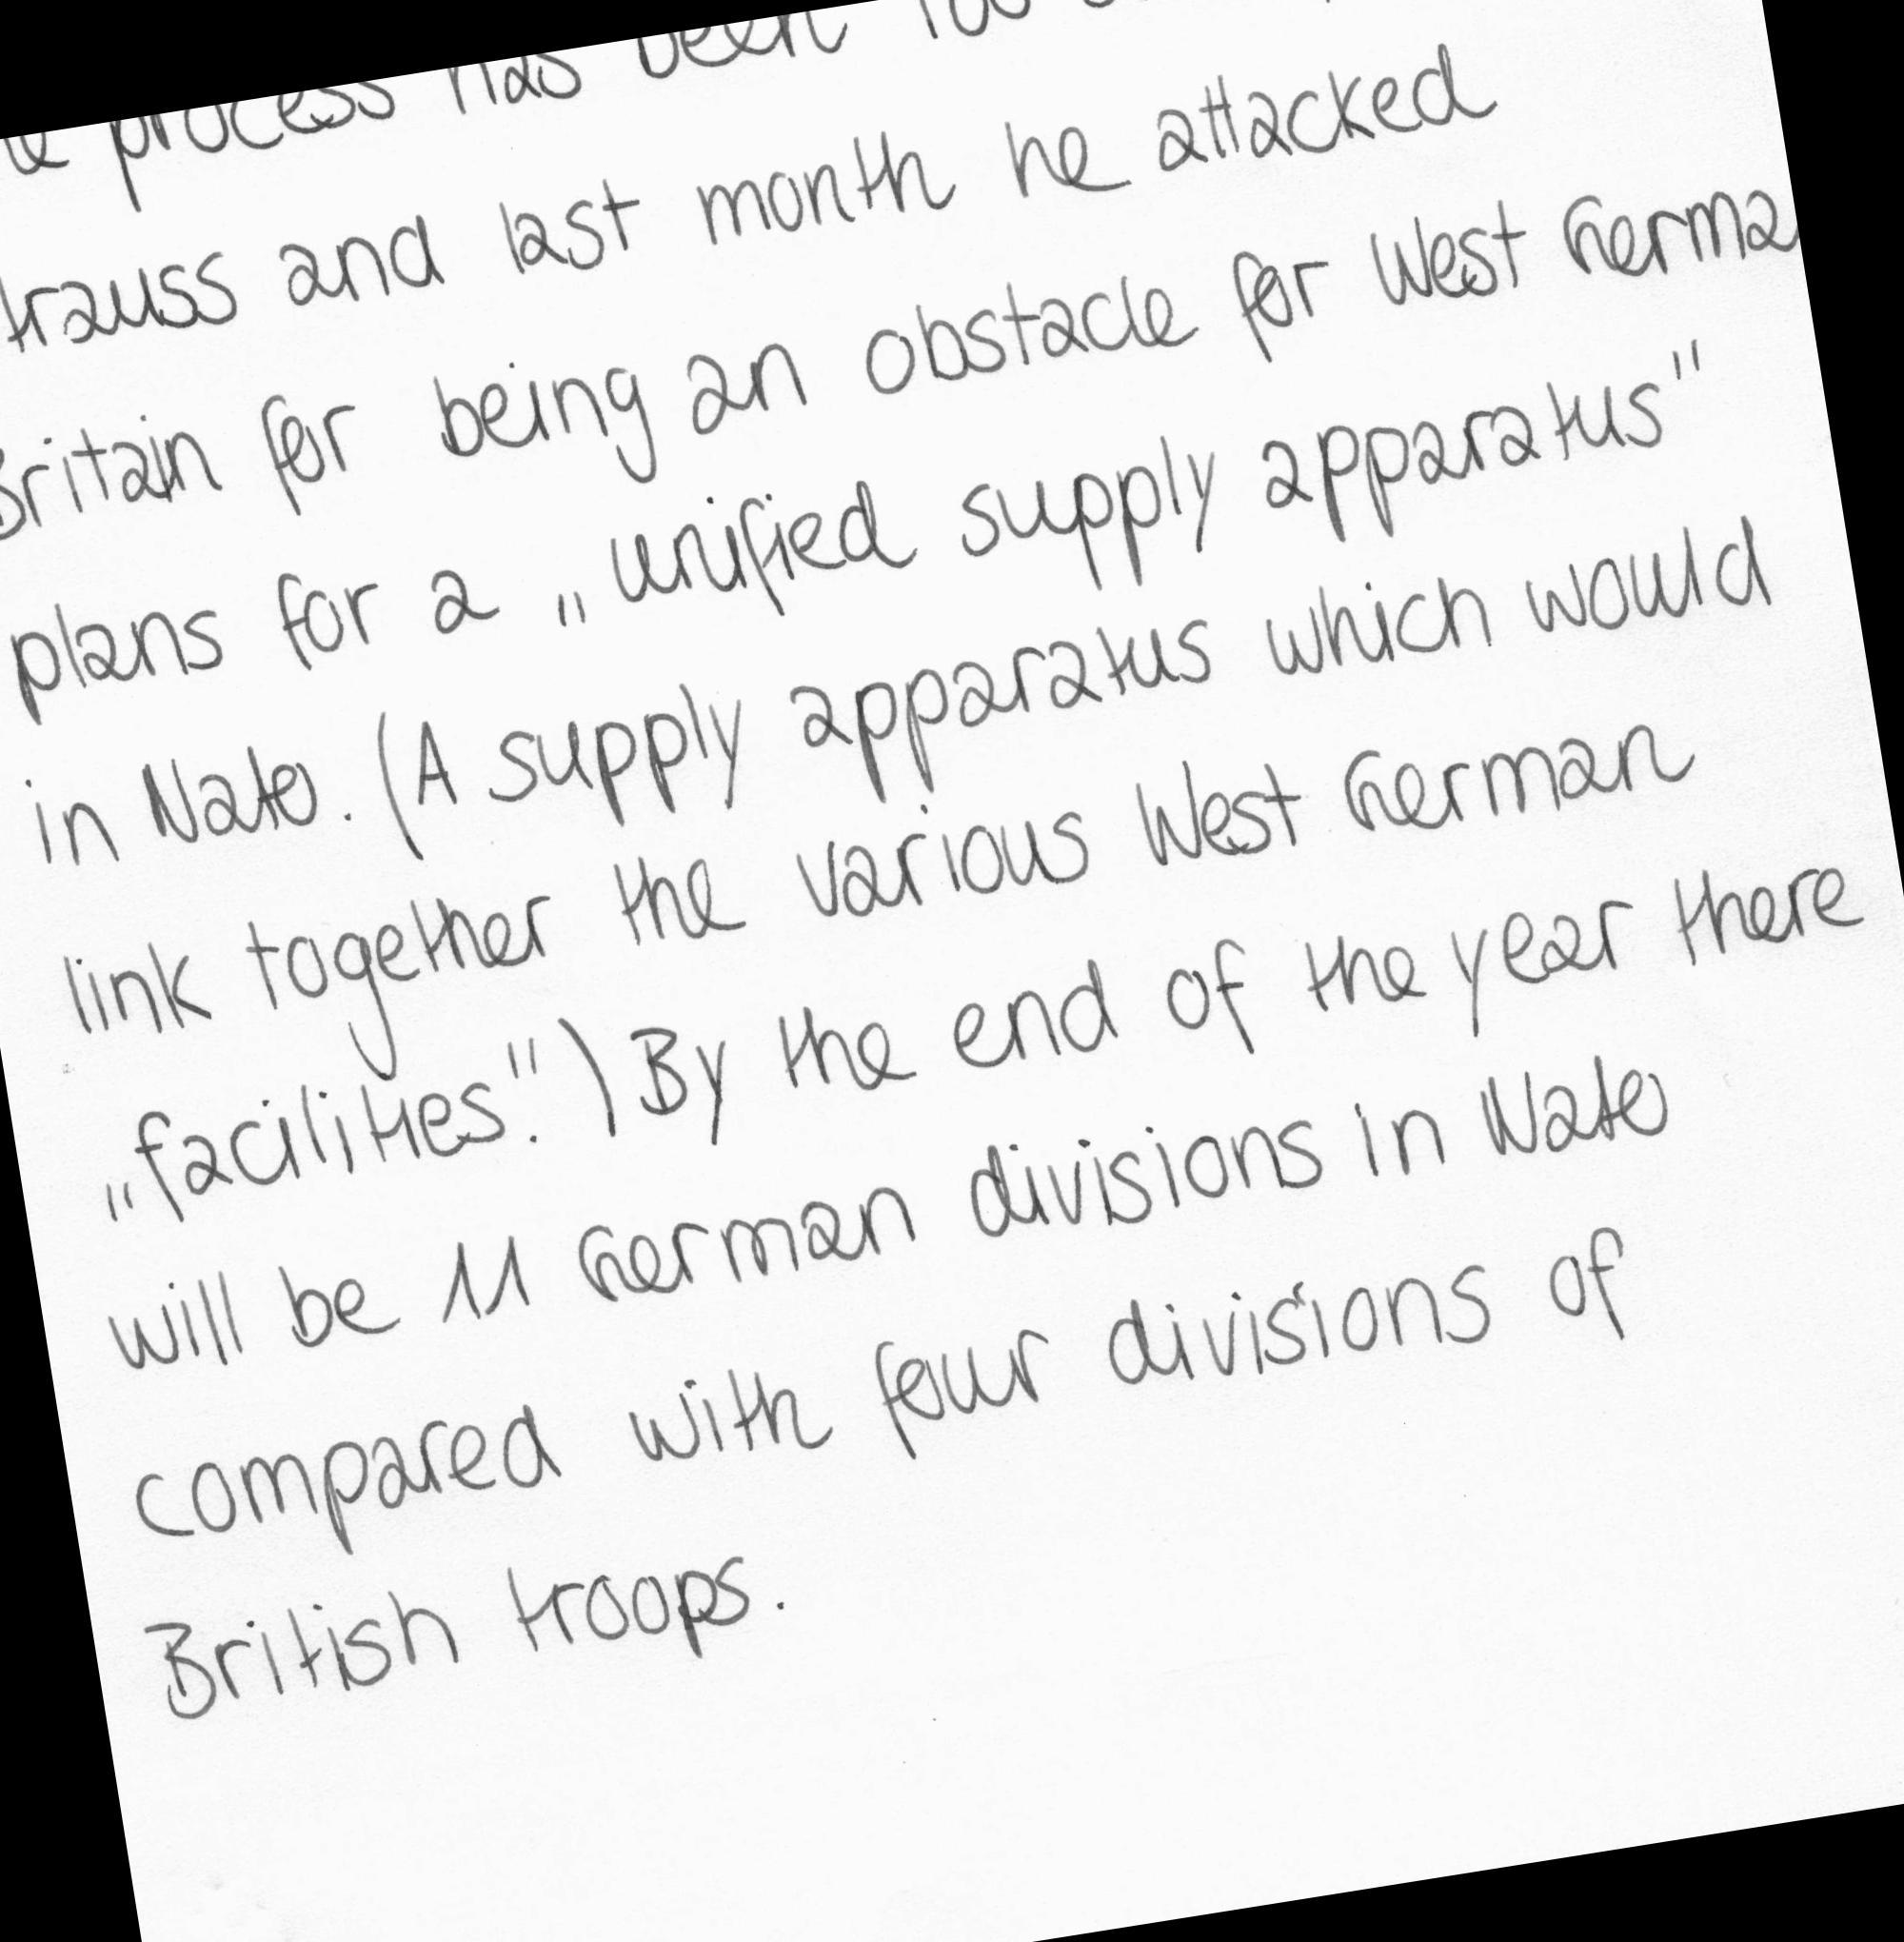 process has been
trauss and last month he attacked
Britain for being an obstacle for West Germa
plans for a „unified supply apparatus"
in Nato. (A supply apparatus which would
link together the various West German
„facilities".) By the end of the year there
will be 11 German divisions in Nato
compared with four divisions of
British troops.